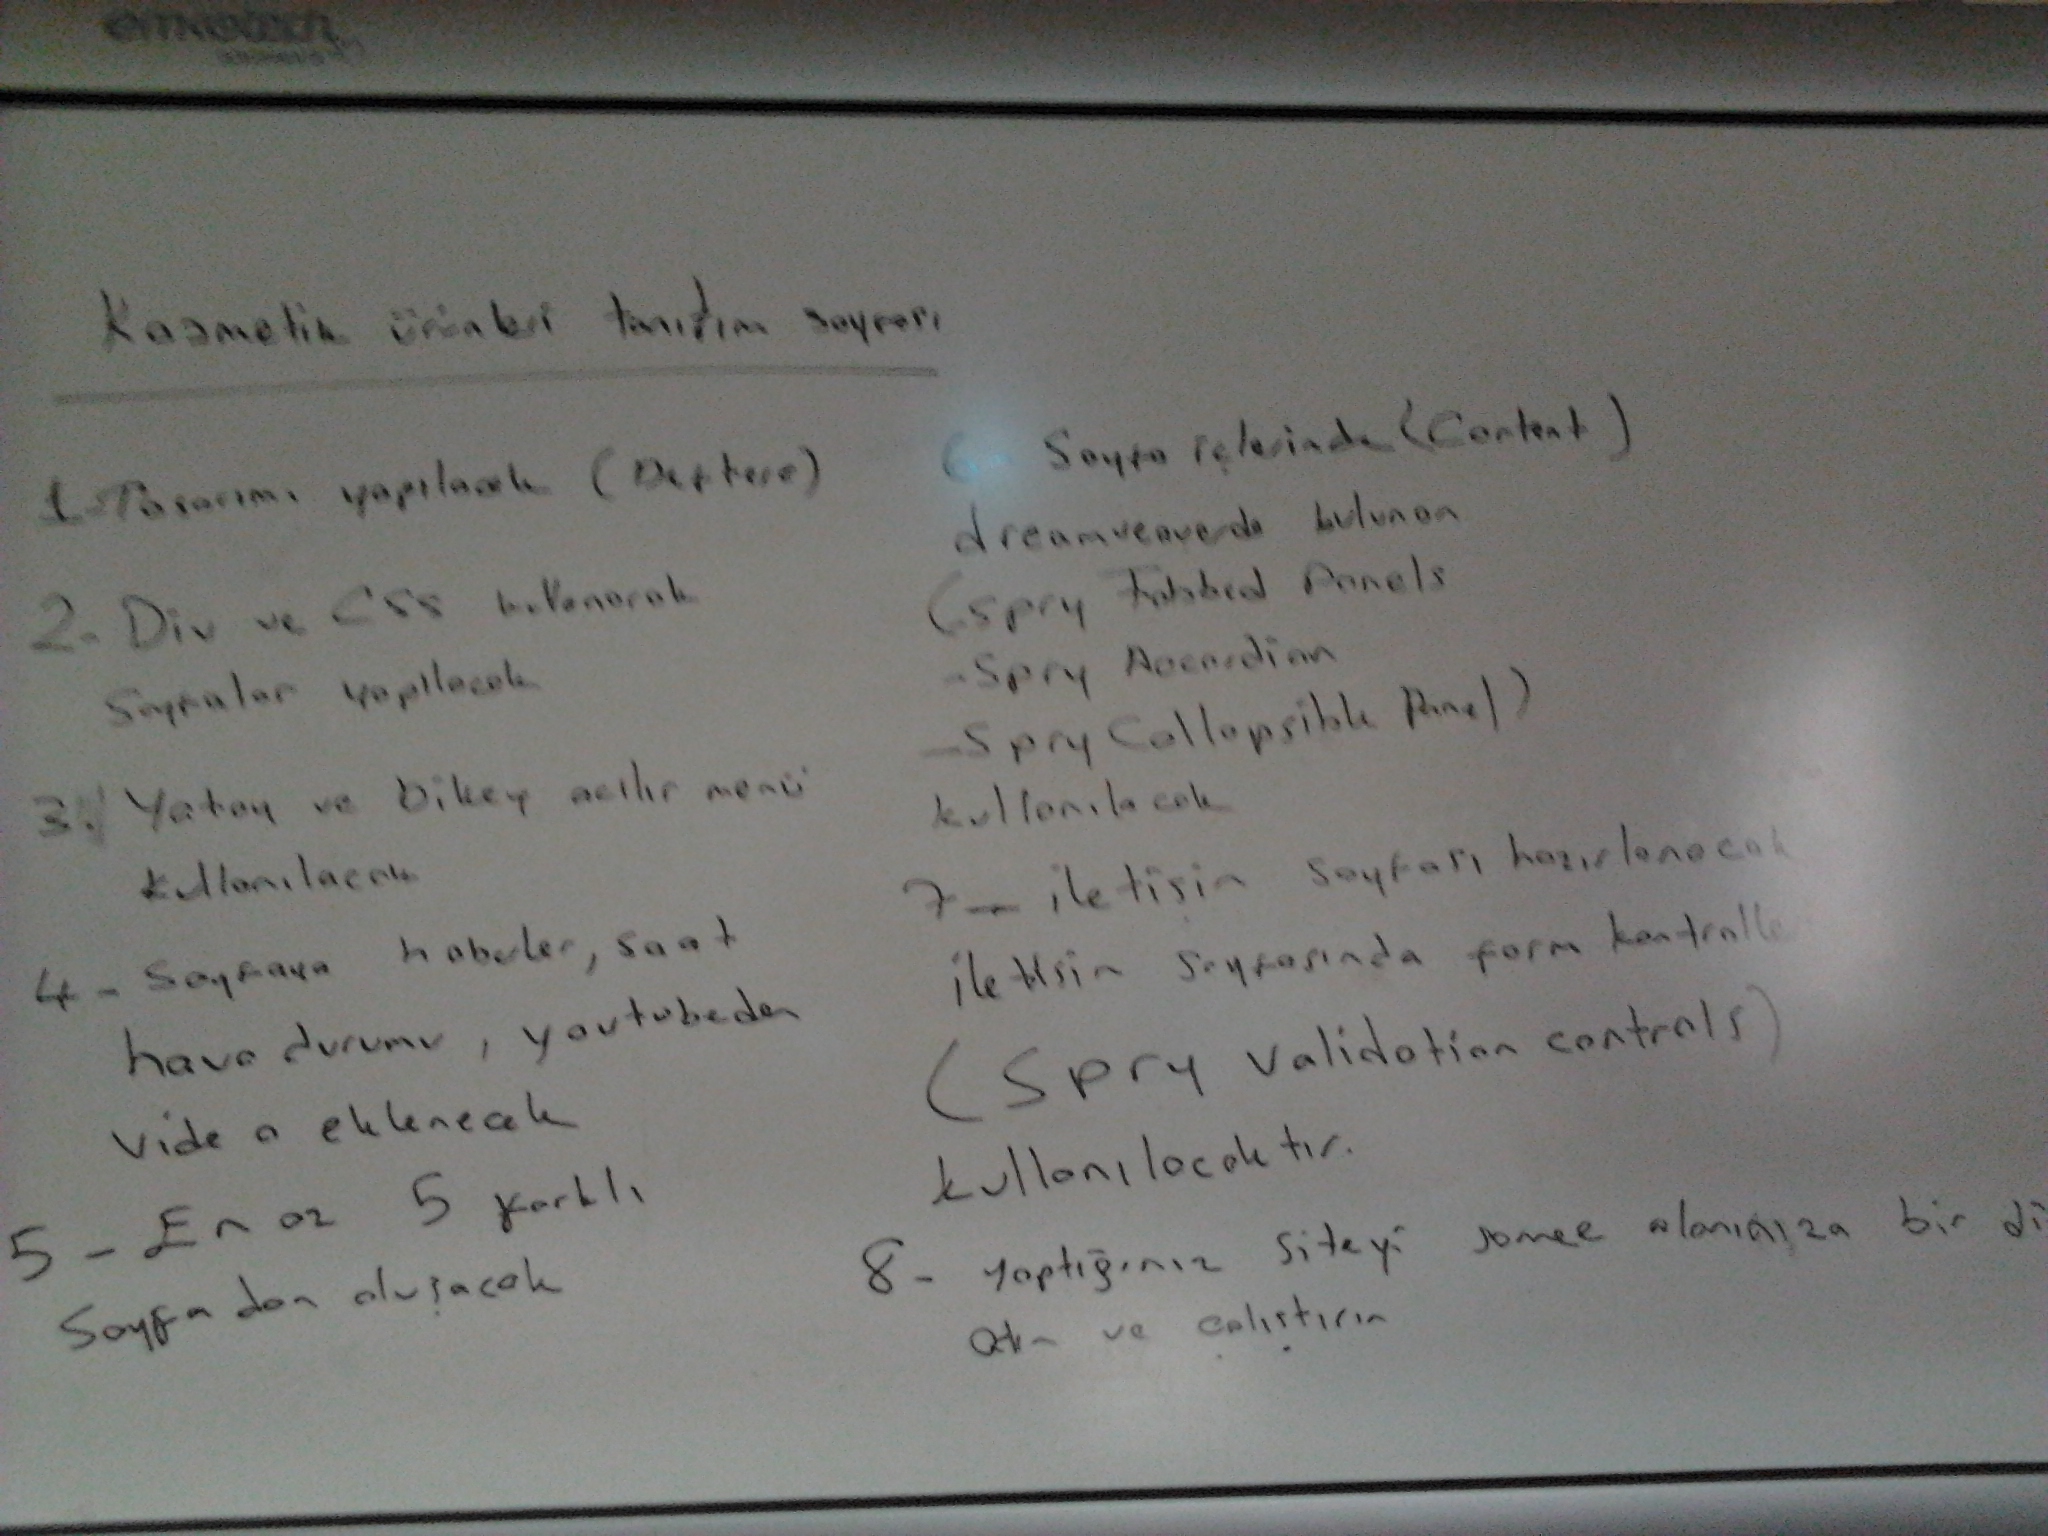 Kozmetik ürünleri tanıtım sayfası
1- Tasarımı yapılacak (Deftere)
2- Div ve CSS kullanarak
Sayfalar yapılacak
3. Yatay ve Dikey açılır menü
kullanılacak
4- Sayfaya haberler, saat
hava durumu, youtubeden
video eklenecek
5- En az 5 farklı
Sayfadan oluşacak
6- Sayfa içlerinde (Content)
dreamveaverda bulunan
(Spry Tabbed Panels
- Spry Accordian
- Spry Collopsible Panel)
kullanılacak
7- iletişin sayfası hazırlanacak
iletişin sayfasında form kontrolle
(Spry validation controls)
kullanılacaktır.
8- yaptığınız siteyi somee alanınıza bir di
atın ve çalıştırın